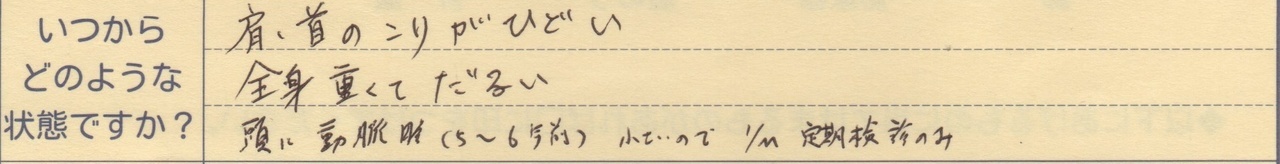 いつから
どのような
状態ですか？
肩、首のこりがひどい
全身重くてだるい
頭に動脈瘤（5〜6年前）小さいので 1/M 定期検診のみ